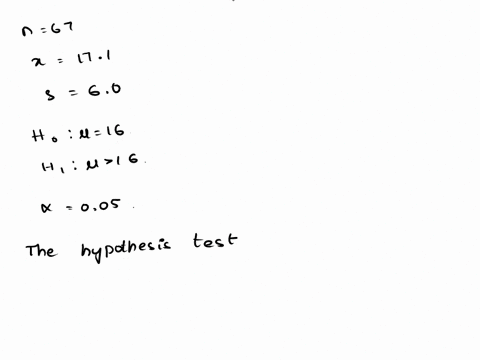 n = 67
x = 17.1
s = 6.0
H₀ : μ = 16
H₁ : μ > 16.
α = 0.05
The hypothesis test